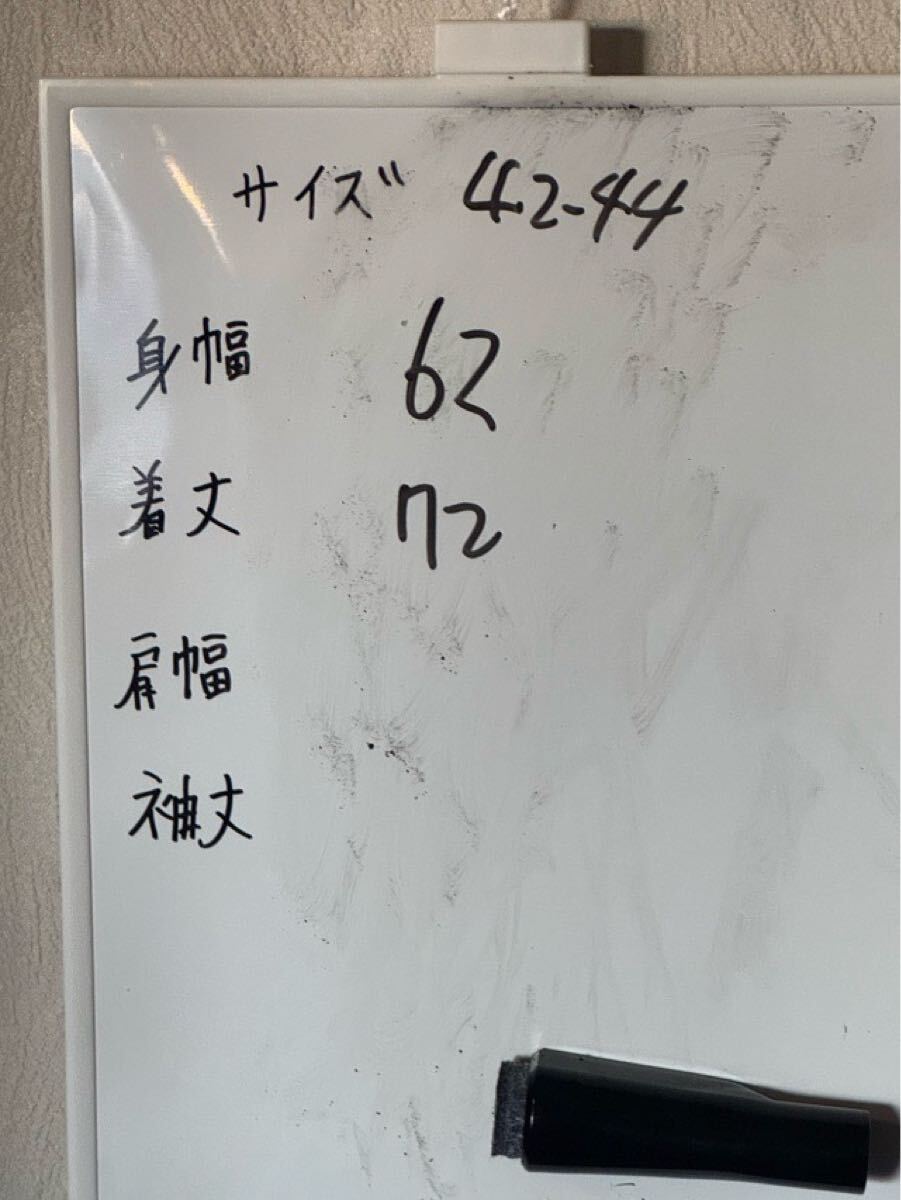 サイズ 42-44
身幅 62
着丈 72
肩幅
袖丈